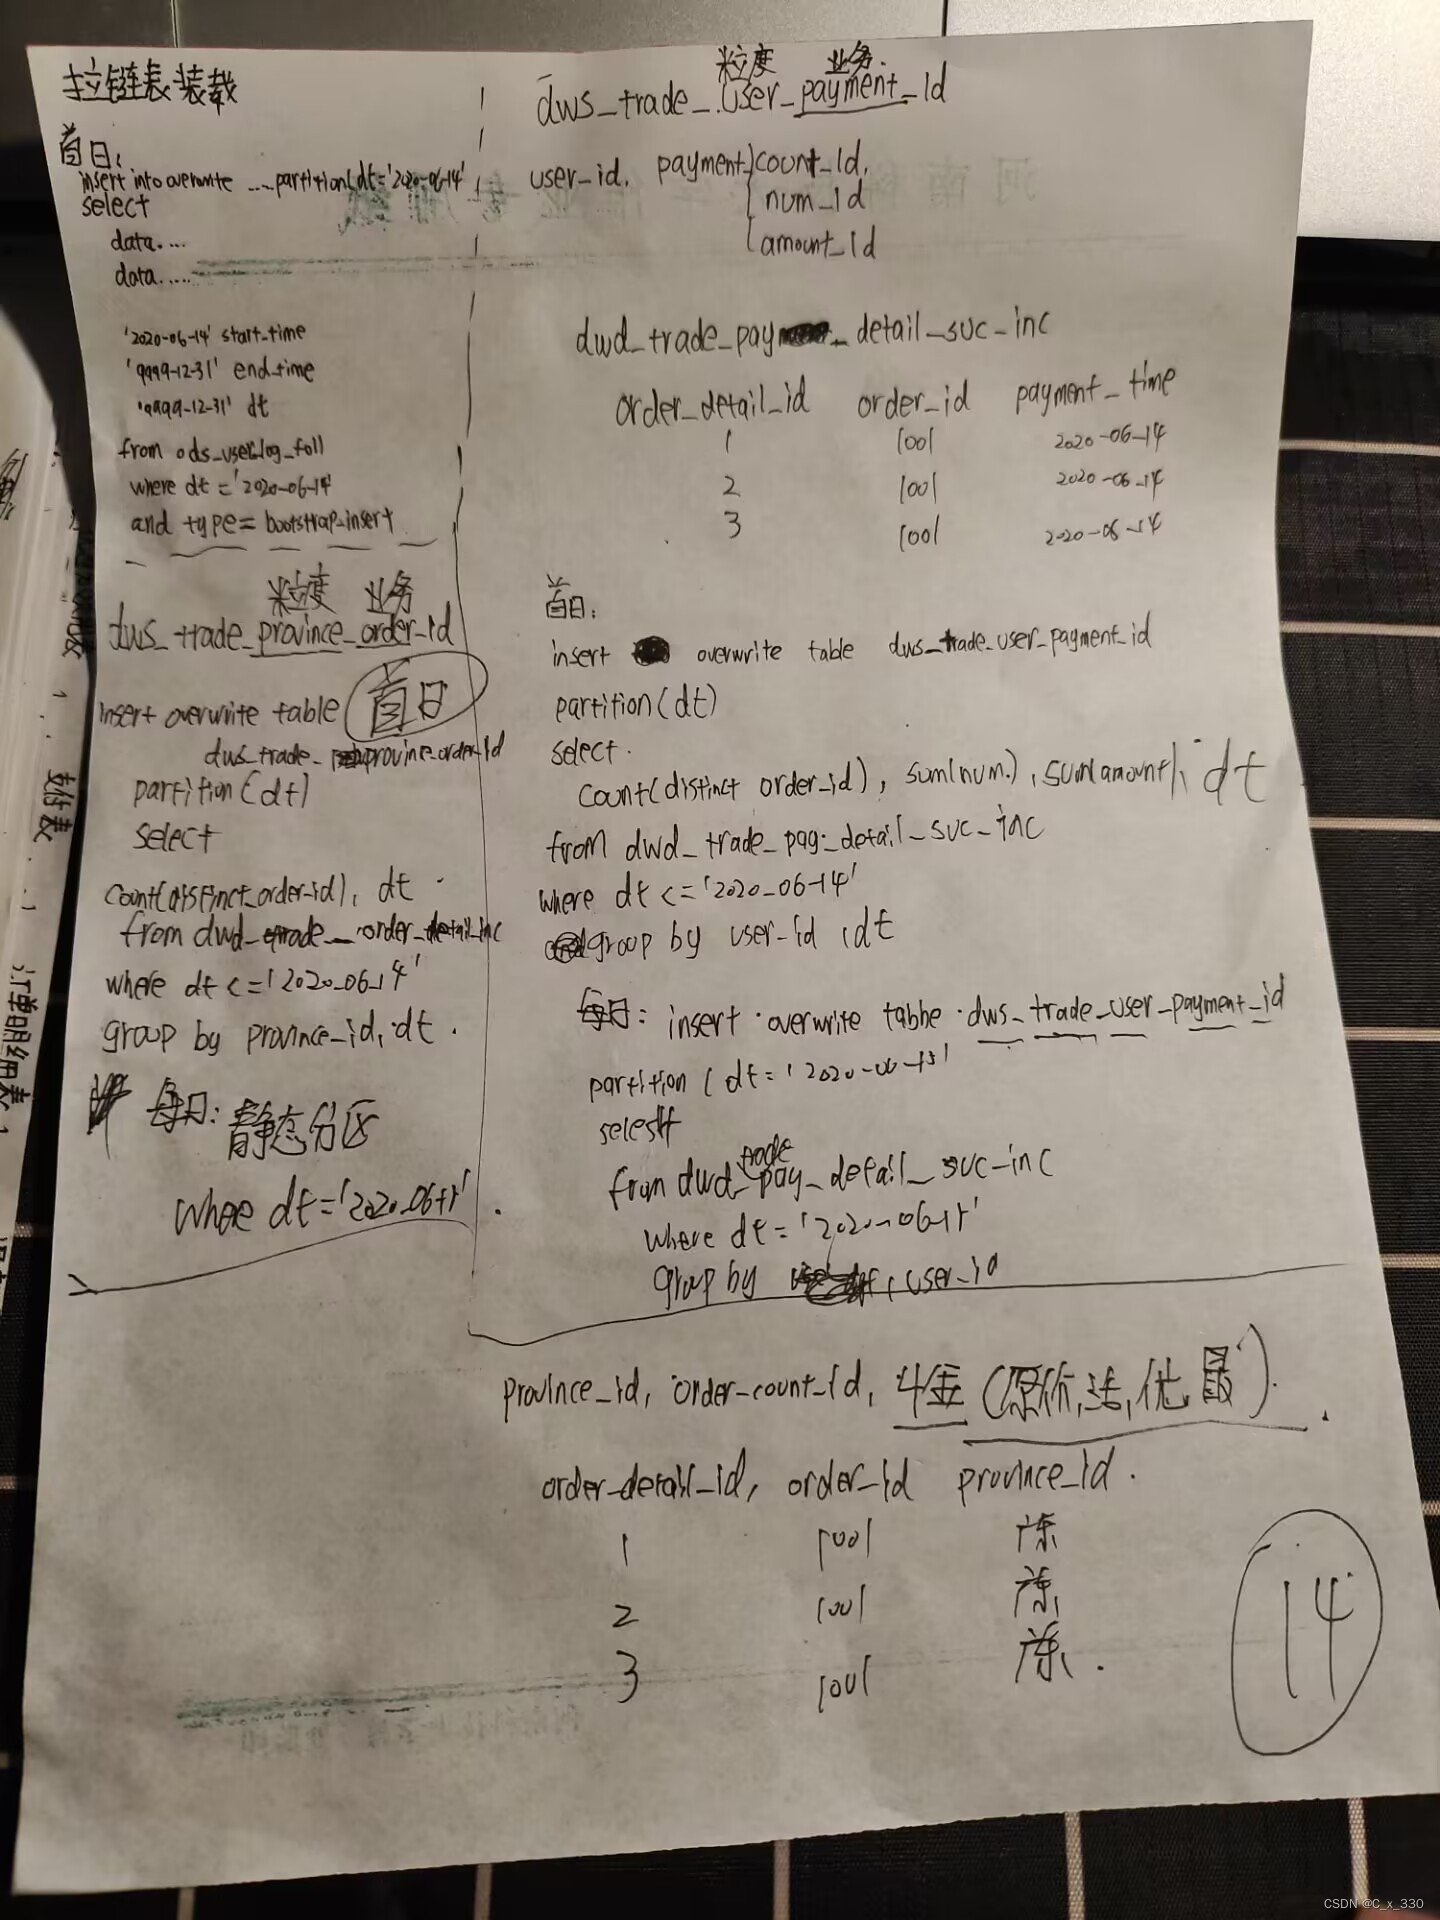 拉链表装载
首日:
insert into overwrite ....partition(dt='2020-06-14'
select
data....
data.....
'2020-06-14' start_time
'9999-12-31' end_time
'9999-12-31' dt
from ods_user_log_foll
where dt ='2020-06-14'
and type= bootstrap-insert
粒度 业务
dws_trade_province_order_1d
insert overwrite table 首日
dws_trade_province_order_1d
partition(dt)
select
count(distinct_order_id), dt
from dwd_trade_order_detail_inc
where dt <='2020-06-14'
group by province_id, dt.
每日: 静态分区
where dt='2020-06-15'
粒度 业务.
dws_trade_user_payment_1d
user_id. payment_count_1d,
num_1d
amount_1d
dwd_trade_pay_detail_suc_inc
order_detail_id order_id payment_time
1 1001 2020-06-14
2 1001 2020-06-14
3 1001 2020-06-14
首日:
insert overwrite table dws_trade_user_payment_1d
partition(dt)
select.
count(distinct order_id), sum(num.), sum(amount), dt
from dwd_trade_pay_detail_suc_inc
where dt <='2020-06-14'
group by user_id ,dt
每日: insert overwrite table dws_trade_user_payment_1d
partition (dt='2020-06-15'
select
from dwd_trade pay_detail_suc_inc
where dt='2020-06-15'
group by user_id
province_id, order_count_1d, 4金(原价,活,优,最).
order_detail_id, order_id province_id.
1 1001 广东
2 1001 广东
3 1001 广东.
14
支付表
订单明细表
CSDN @C_x_330